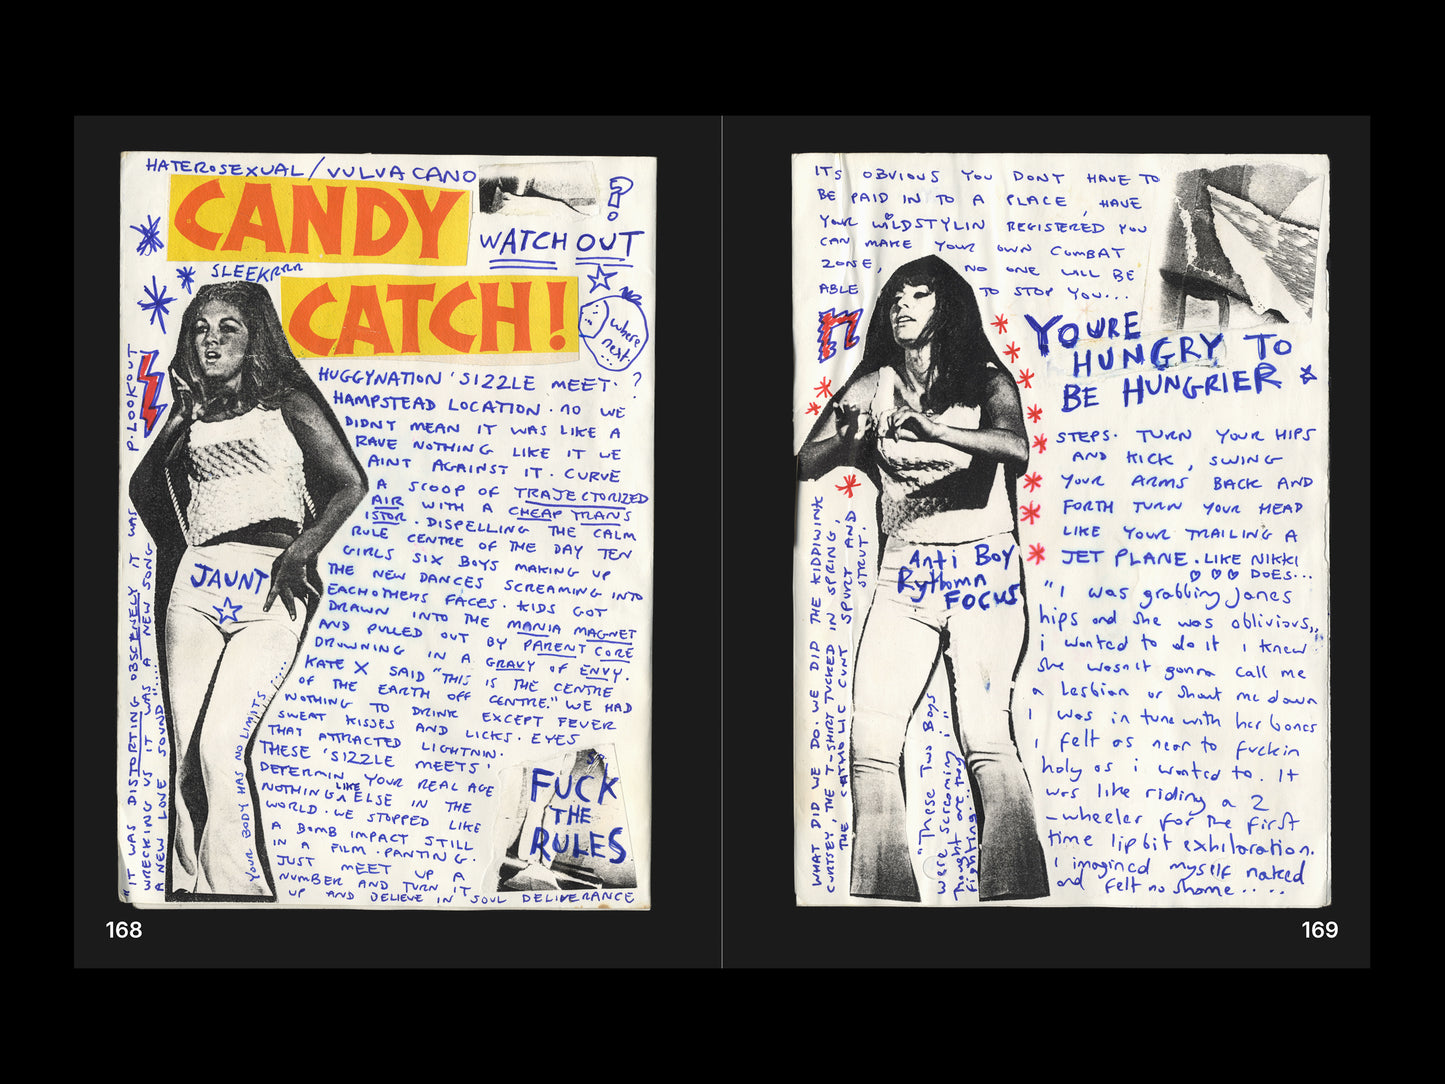 HATEROSEXUAL/VULVACANO
CANDY
CATCH!
?
WATCH OUT
SLEEKRRRR
where
next..
?
P.LOOKOUT
HUGGYNATION 'SIZZLE MEET.
HAMPSTEAD LOCATION. NO WE
DIDNT MEAN IT WAS LIKE A
RAVE NOTHING LIKE IT WE
AINT AGAINST IT. CURVE
A SCOOP OF TRAJECTORIZED
AIR WITH A CHEAP TRANS
ISTOR. DISPELLING THE CALM
RULE CENTRE OF THE DAY TEN
GIRLS SIX BOYS MAKING UP
THE NEW DANCES SCREAMING INTO
EACHOTHERS FACES. KIDS GOT
DRAWN INTO THE MANIA MAGNET
AND PULLED OUT BY PARENT CORE
DROWNING IN A GRAVY OF ENVY.
KATE X SAID "THIS IS THE CENTRE
OF THE EARTH OFF CENTRE." WE HAD
NOTHING TO DRINK EXCEPT FEVER
SWEAT KISSES AND LICKS. EYES
THAT ATTRACTED LIGHTNIN.
THESE 'SIZZLE MEETS'
DETERMIN YOUR REAL AGE
NOTHING LIKE ELSE IN THE
WORLD. WE STOPPED LIKE
A BOMB IMPACT STILL
IN A FILM. PANTING.
JUST MEET UP A
NUMBER AND TURN IT
UP AND DELIEVE IN SOUL DELIVERANCE
JAUNT
FUCK
THE
RULES
YOUR BODY HAS NO LIMITS.....
"IT WAS DISTORTING OBSCENELY IT WAS
WRECKING US IT WAS A NEW SONG
A NEW LOVE SOUND"......
168
ITS OBVIOUS YOU DONT HAVE TO
BE PAID IN TO A PLACE, HAVE
YOUR WILDSTYLIN REGISTERED YOU
CAN MAKE YOUR OWN COMBAT
ZONE, NO ONE WILL BE
ABLE TO STOP YOU...
n
YOURE
HUNGRY TO
BE HUNGRIER
STEPS. TURN YOUR HIPS
AND KICK, SWING
YOUR ARMS BACK AND
FORTH TURN YOUR HEAD
LIKE YOUR TRAILING A
JET PLANE. LIKE NIKKI
DOES...
"I was grabbing Janes
hips and she was oblivious,,
i wanted to do it i knew
She wasnt gonna call me
a Lesbian or shout me down
I was in tune with her bones
i felt as near to fuckin
holy as i wanted to. It
was like riding a 2
-wheeler for the first
time lip bit exhiloration.
I imagined myself naked
and felt no shame....
Anti Boy
Rythomn
FOCUS
WHAT DID WE DO. WE DID THE KIDDIWINK
CURTSEY, THE T-SHIRT TUCKED IN SPRING,
THE CATHOLIC CUNT SPURT AND
STRUT.
"These Two Boys
were screaming,"
Thought one they
fighting...
169